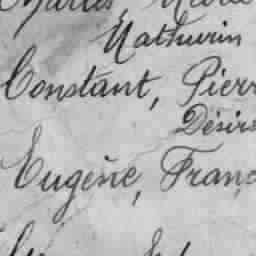 Mathurin
Constant, Pierr
Désiré
Eugène, Franç